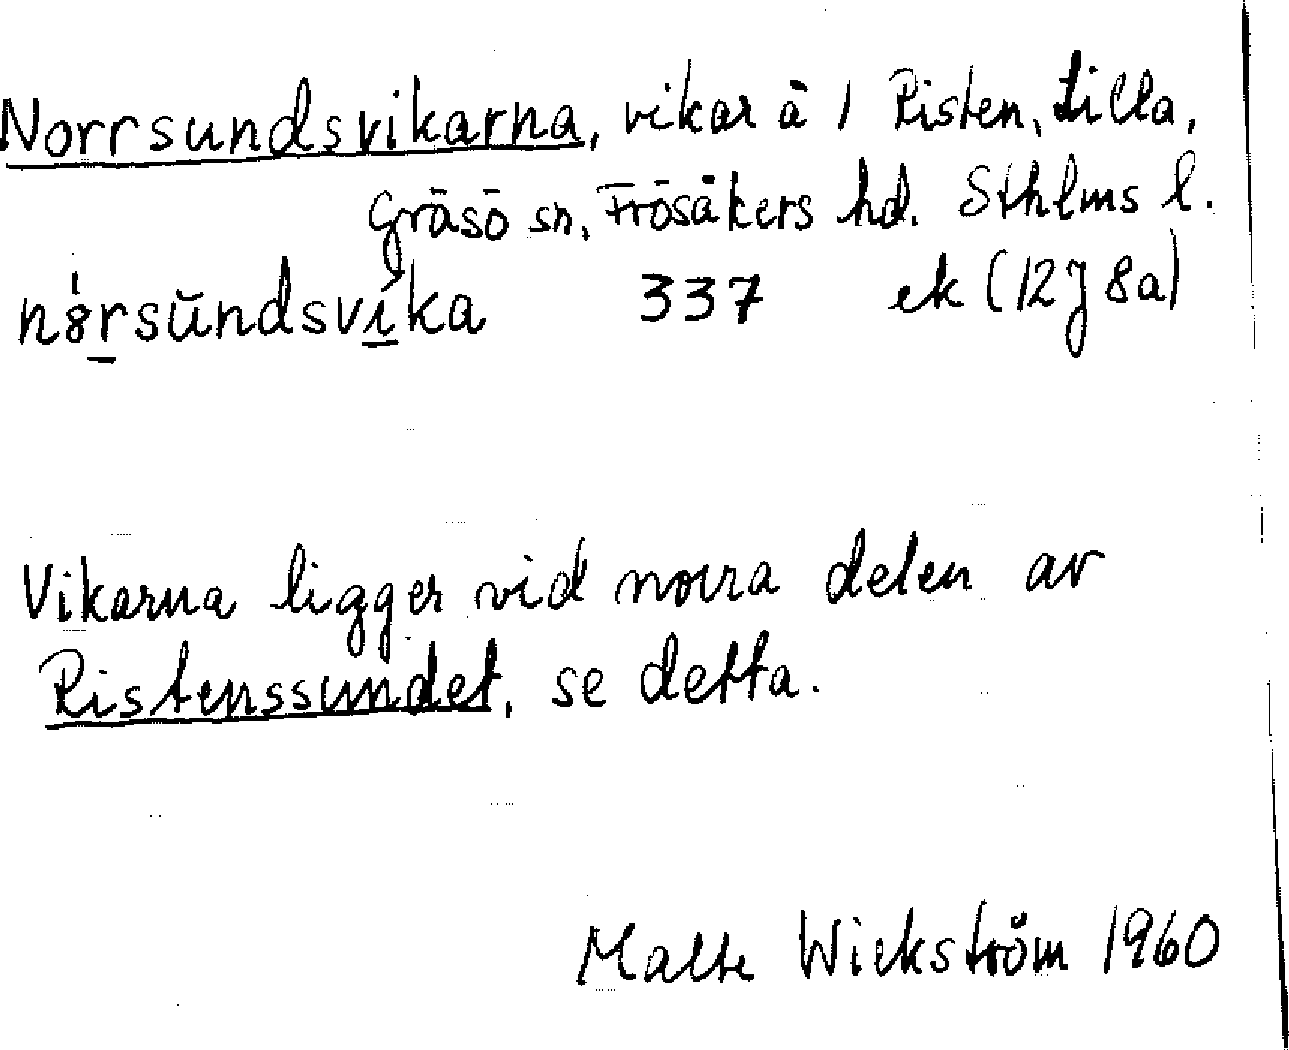 Norrsundsvikarna, vikar å 1 Risten, Lilla,
Gräsö sn, Frösåkers hd. Sthlms l.
n8̍rsŭndsvíka 337 ek (12J 8a)
Vikarna ligger vid norra delen av
Ristenssundet, se detta.
Malte Wickström 1960